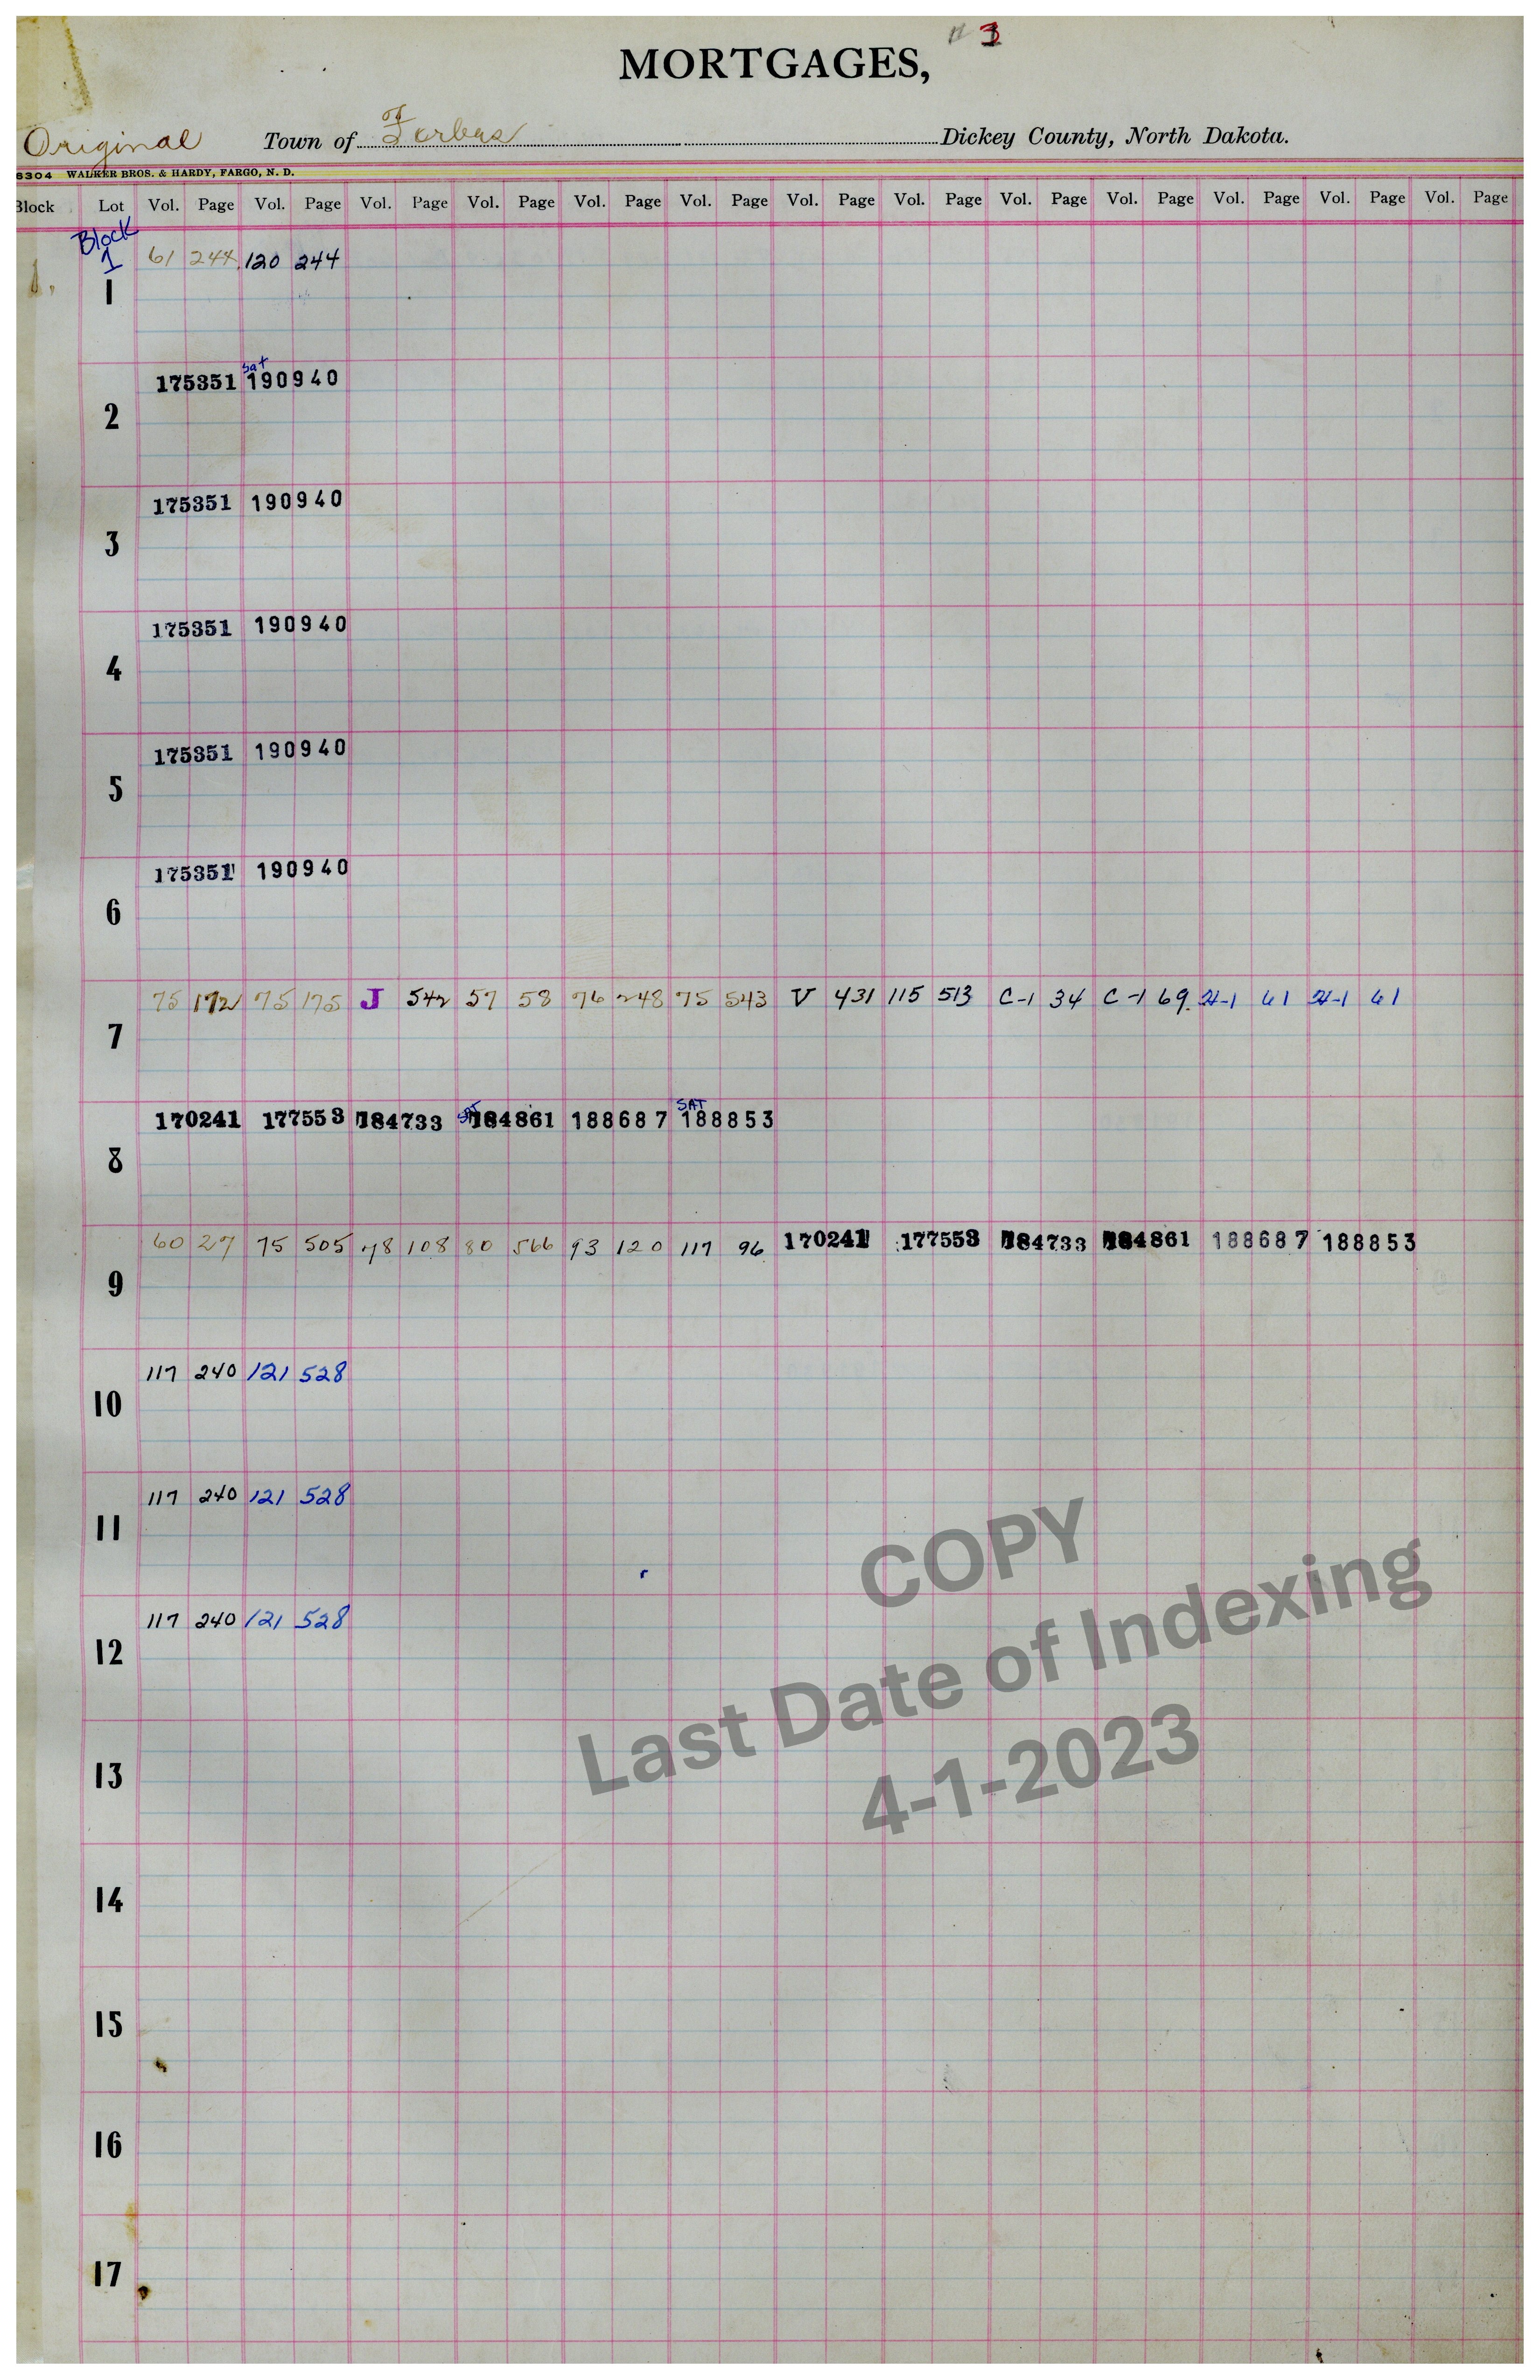 3
MORTGAGES,
of
Original Town of Forbes Dickey County, North Dakota.
6304 WALKER BROS. & HARDY, FARGO, N. D.
Block Lot Vol. Page Vol. Page Vol. Page Vol. Page Vol. Page Vol. Page Vol. Page Vol. Page Vol. Page Vol. Page Vol. Page Vol. Page Vol. Page
Block
1
1. 61 244 120 244
1
sat
175351 190940
2
175351 190940
3
175351 190940
4
175351 190940
5
175351 190940
6
75 172 75 175 J 542 57 58 76 248 75 543 V 431 115 513 C-1 34 C-1 69 61 61
7
SAT SAT
170241 177553 184733 184861 188687 188853
8
60 27 75 505 78 108 80 566 93 120 117 96 170241 177553 184733 184861 188687 188853
9
117 240 121 528
10
117 240 121 528
11
117 240 121 528
12
13
14
15
16
17
COPY
Last Date of Indexing
4-1-2023